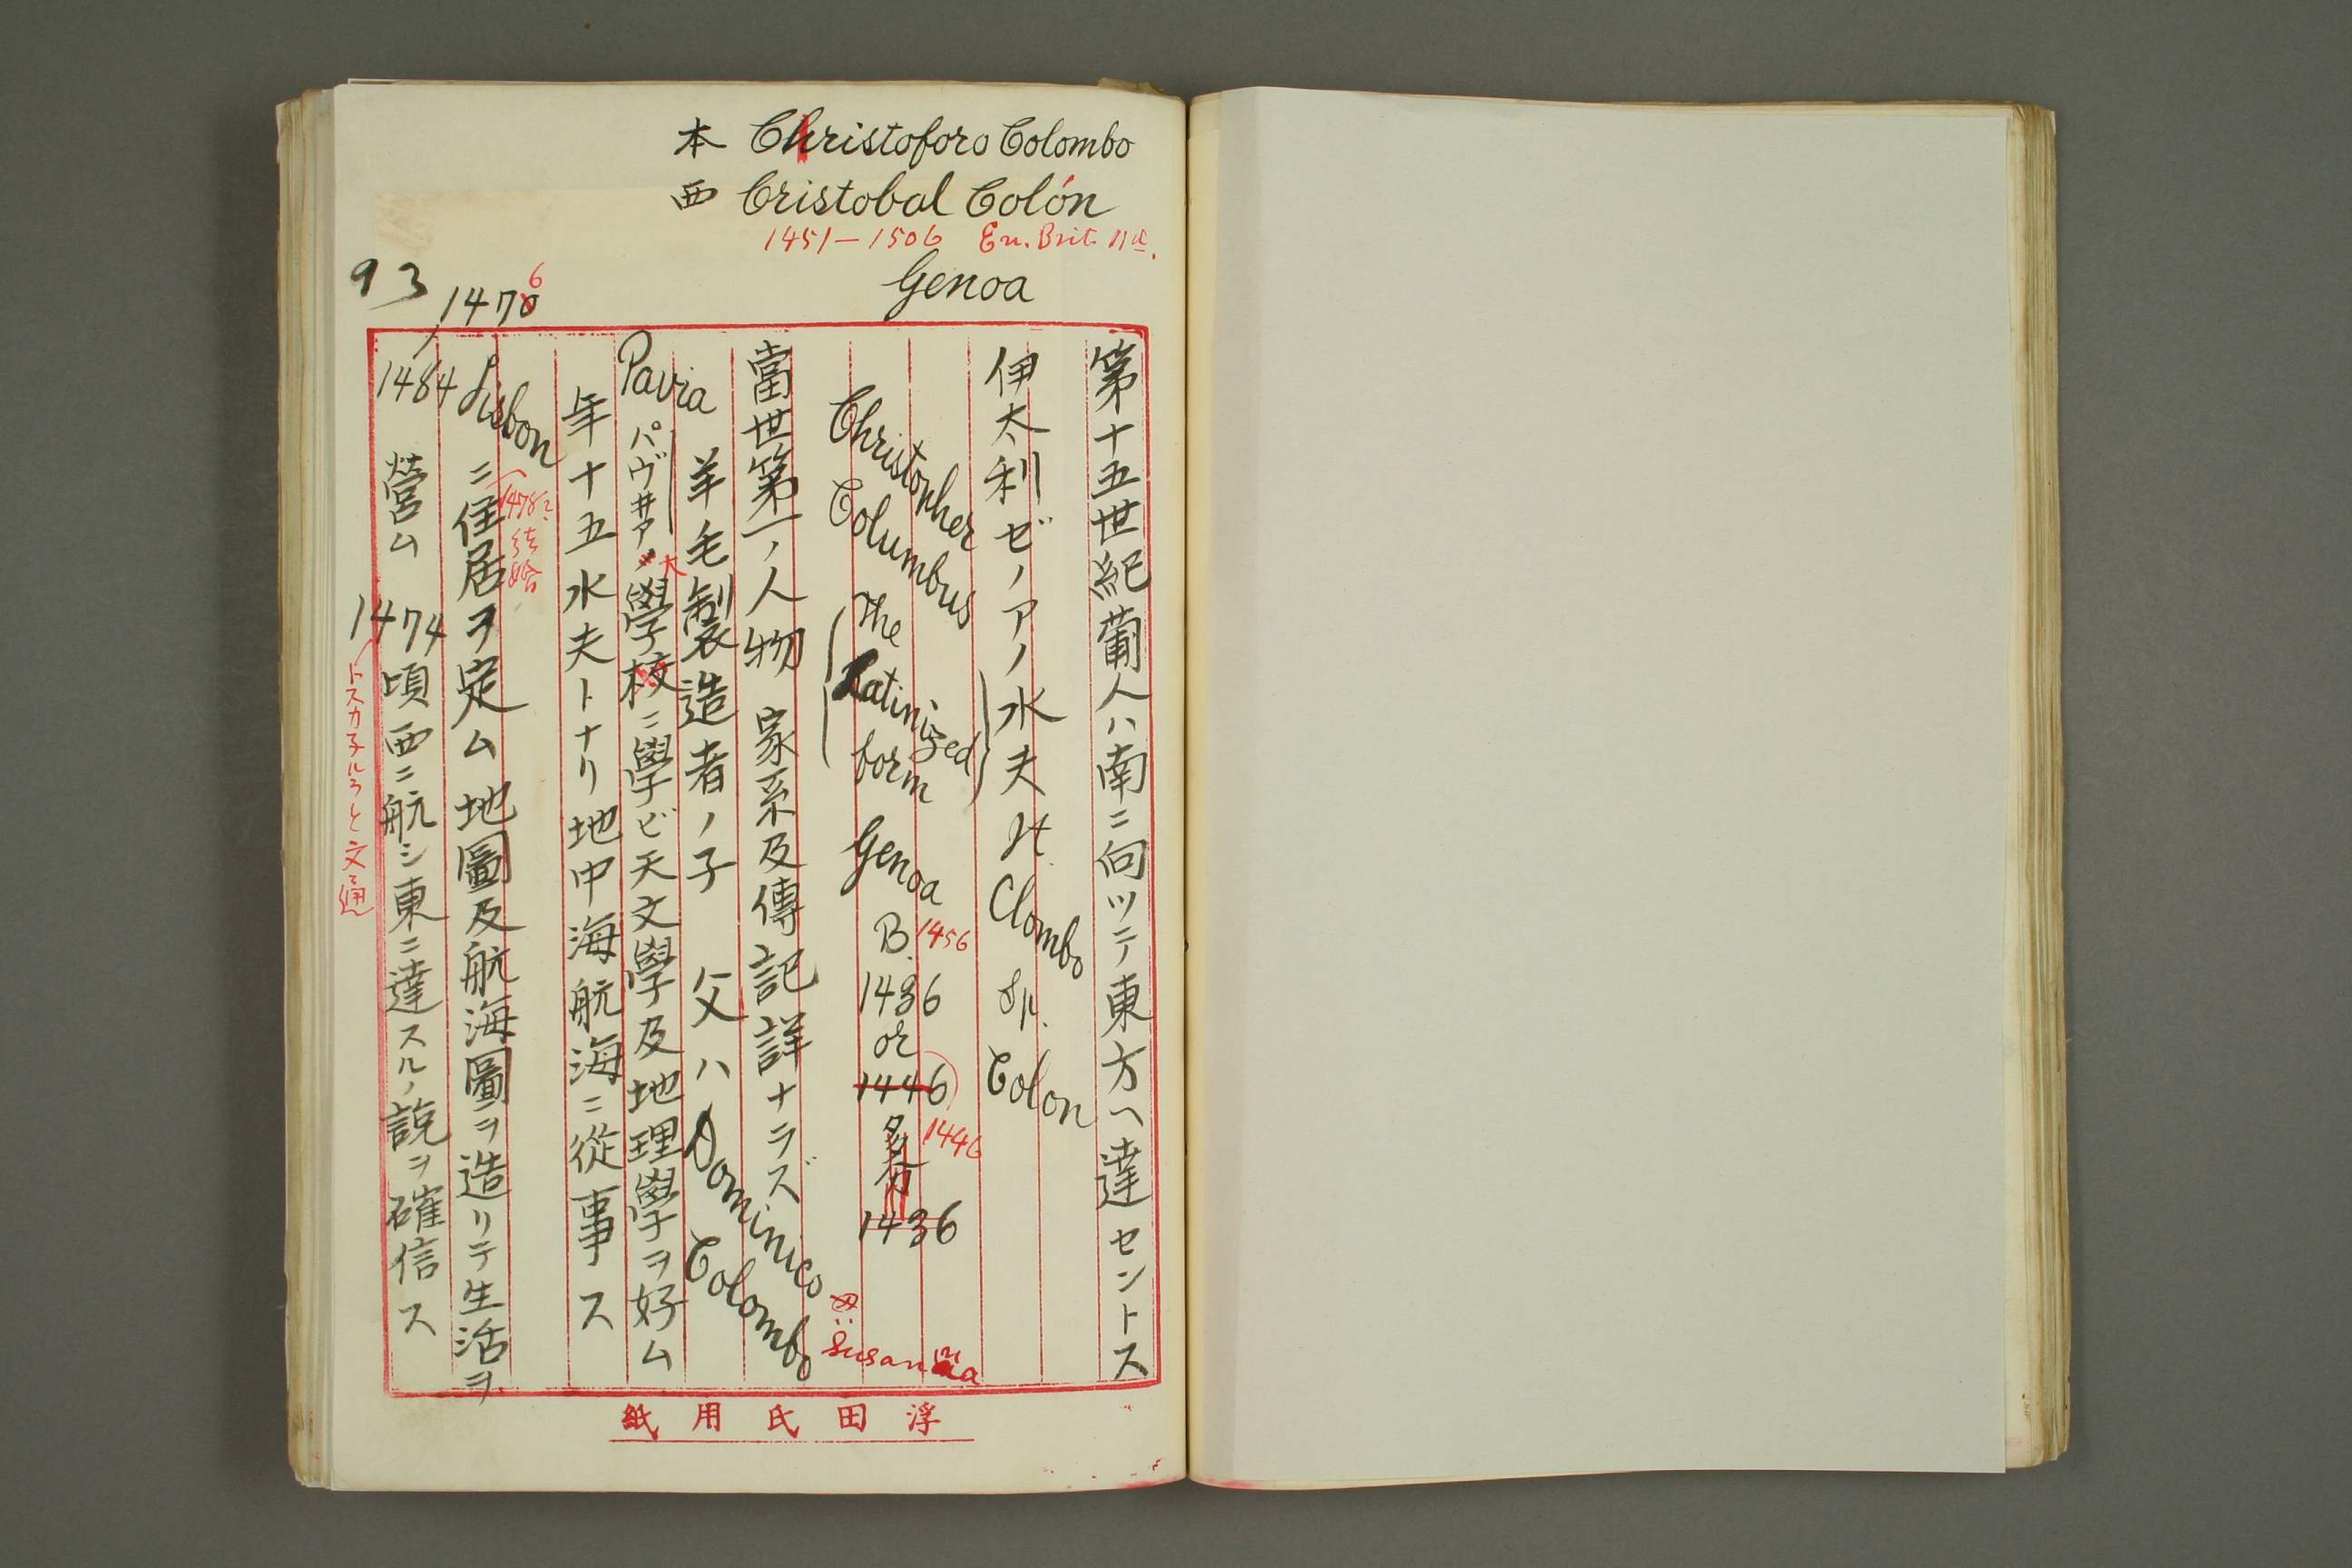 本 Christoforo Colombo
西 Cristobal Colón
1451–1506 En. Brit. 11th.
Genoa
93
14706
1484
第十五世紀葡人ハ南ニ向ツテ東方ヘ達セントス
伊太利ゼノアノ水夫 It. Clombo Sp. Colon
Christopher Columbus (The Latinized form) Genoa B. 1456 1436 or 1446) 多分 1446 1436
當世第一ノ人物 家系及傳記詳ナラズ
羊毛製造者ノ子 父ハ Dominico Colombo 母: Susanna
Pavia パヴヰアノ大學校ニ學ビ天文學及地理學ヲ好ム
年十五水夫トナリ地中海航海ニ從事ス
(1478? 結婚
Lisbon ニ住居ヲ定ム 地圖及航海圖ヲ造リテ生活ヲ
營ム 1474頃西ニ航シ東ニ達スルノ說ヲ確信ス
トスカネルラと文通
浮田氏用紙